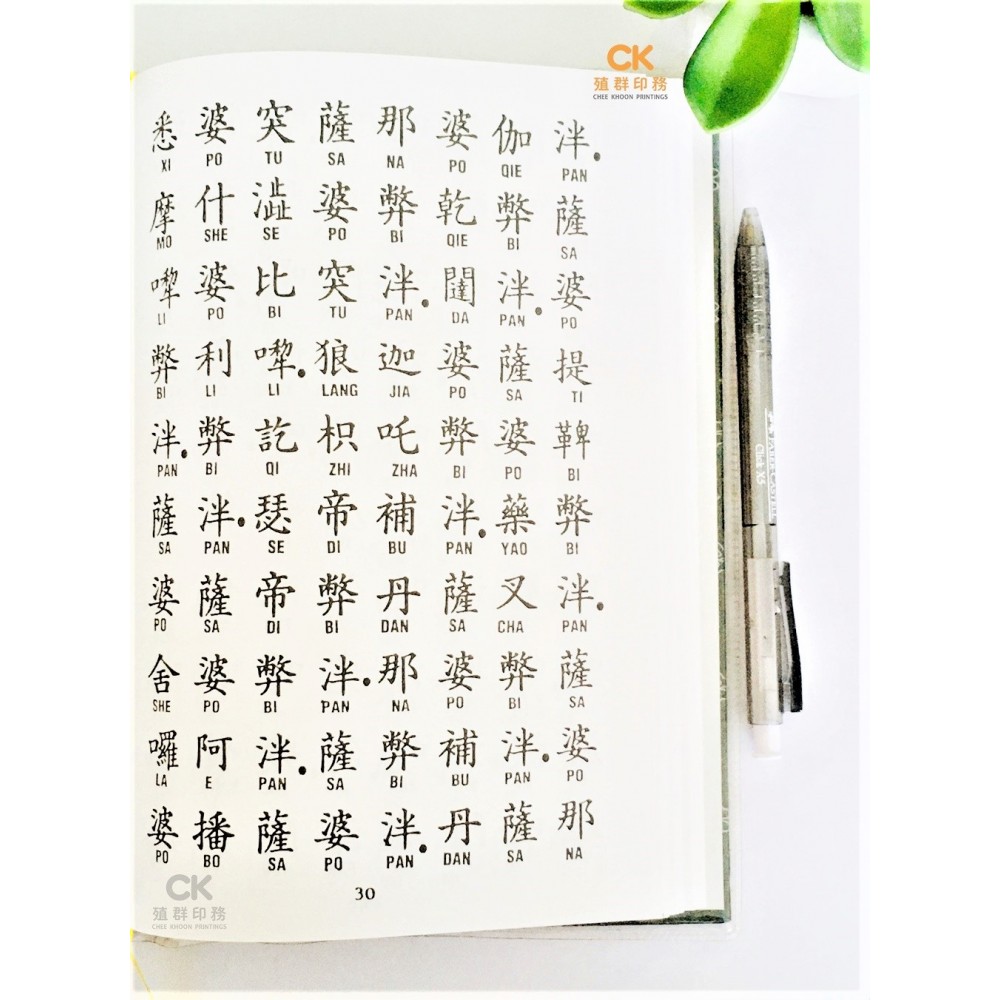 CK
殖群印務
CHEE KHOON PRINTINGS
泮.薩婆提鞞弊泮.薩婆那
PAN SA PO TI BI BI PAN SA PO NA
伽弊泮.薩婆藥叉弊泮.薩
QIE BI PAN SA PO YAO CHA BI PAN SA
婆乾闥婆弊泮.薩婆補丹
PO QIE DA PO BI PAN SA PO BU DAN
那弊泮.迦吒補丹那弊泮.
NA BI PAN JIA ZHA BU DAN NA BI PAN
薩婆突狼枳帝弊泮.薩婆
SA PO TU LANG ZHI DI BI PAN SA PO
突澁比𠼝.訖瑟帝弊泮.薩
TU SE BI LI QI SE DI BI PAN SA
婆什婆利弊泮.薩婆阿播
PO SHE PO LI BI PAN SA PO E BO
悉摩𠼝弊泮.薩婆舍囉婆
XI MO LI BI PAN SA PO SHE LA PO
30
CK
殖群印務
CHEE KHOON PRINTINGS